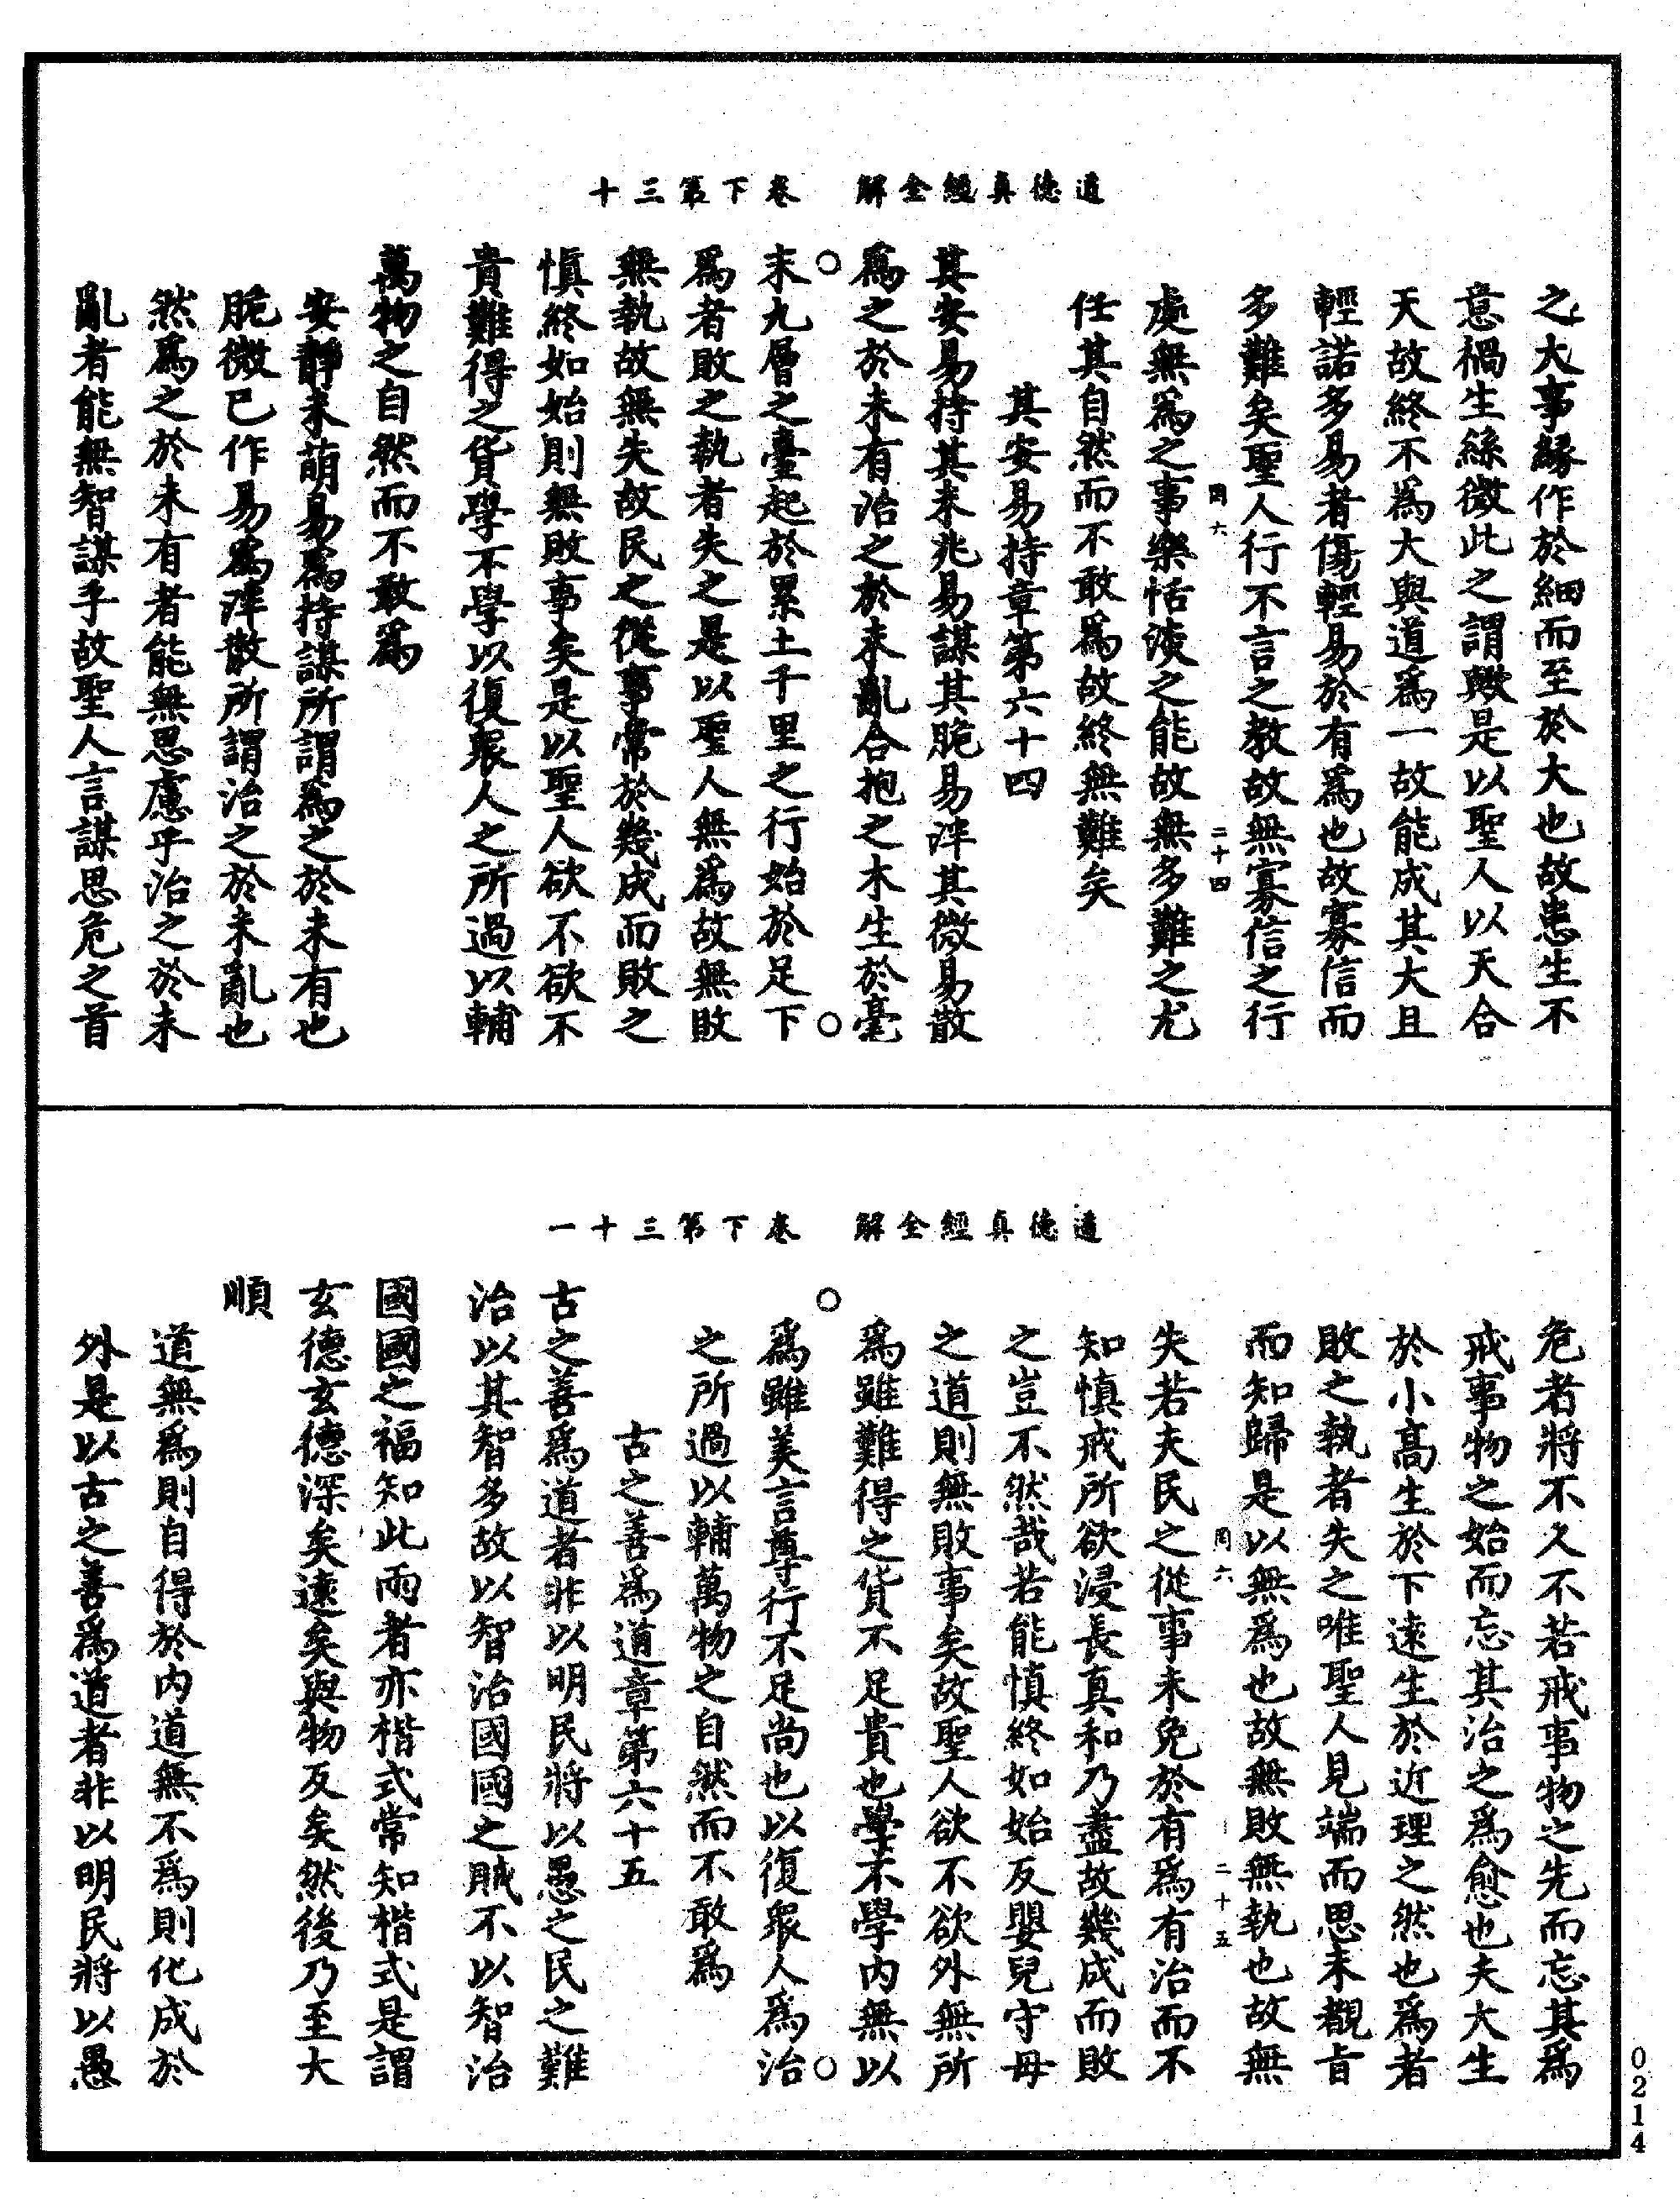 道德真經全解　卷下第三十
之大事緣作於細而至於大也故患生不
意禍生絲微此之謂歟是以聖人以天合
天故終不為大與道為一故能成其大且
輕諾多易者傷輕易於有為也故寡信而
多難矣聖人行不言之教故無寡信之行
罔六　二十四
處無為之事樂恬淡之能故無多難之尤
任其自然而不敢為故終無難矣
其安易持章第六十四
其安易持其未兆易謀其脆易泮其微易散
為之於未有治之於未亂合抱之木生於毫
末九層之臺起於累土千里之行始於足下
為者敗之執者失之是以聖人無為故無敗
無執故無失故民之從事常於幾成而敗之
慎終如始則無敗事矣是以聖人欲不欲不
貴難得之貨學不學以復眾人之所過以輔
萬物之自然而不敢為
安靜未萌易為持謀所謂為之於未有也
脆微已作易為泮散所謂治之於未亂也
然為之於未有者能無思慮乎治之於未
亂者能無智謀乎故聖人言謀思危之首
道德真經全解　卷下第三十一
危者將不久不若戒事物之先而忘其為
戒事物之始而忘其治之為愈也夫大生
於小高生於下遠生於近理之然也為者
敗之執者失之唯聖人見端而思末覩旨
而知歸是以無為也故無敗無執也故無
罔六　二十五
失若夫民之從事未免於有為有治而不
知慎戒所欲浸長真和乃盡故幾成而敗
之豈不然哉若能慎終如始反嬰兒守母
之道則無敗事矣故聖人欲不欲外無所
為雖難得之貨不足貴也學不學內無以
為雖美言尊行不足尚也以復眾人為治
之所過以輔萬物之自然而不敢為
古之善為道章第六十五
古之善為道者非以明民將以愚之民之難
治以其智多故以智治國國之賊不以智治
國國之福知此兩者亦楷式常知楷式是謂
玄德玄德深矣遠矣與物反矣然後乃至大
順
道無為則自得於內道無不為則化成於
外是以古之善為道者非以明民將以愚
0214